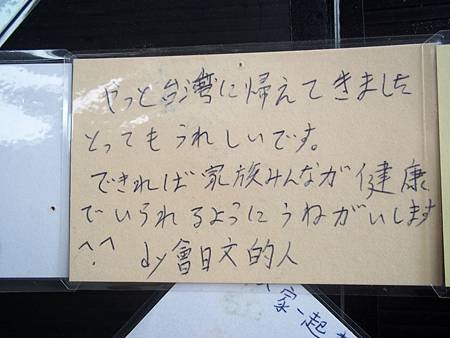 やっと台湾に帰えてきました
とってもうれしいです。
できれば家族みんなが健康
でいられるようにうねがいします
^.^ dy 會日文的人
家一起